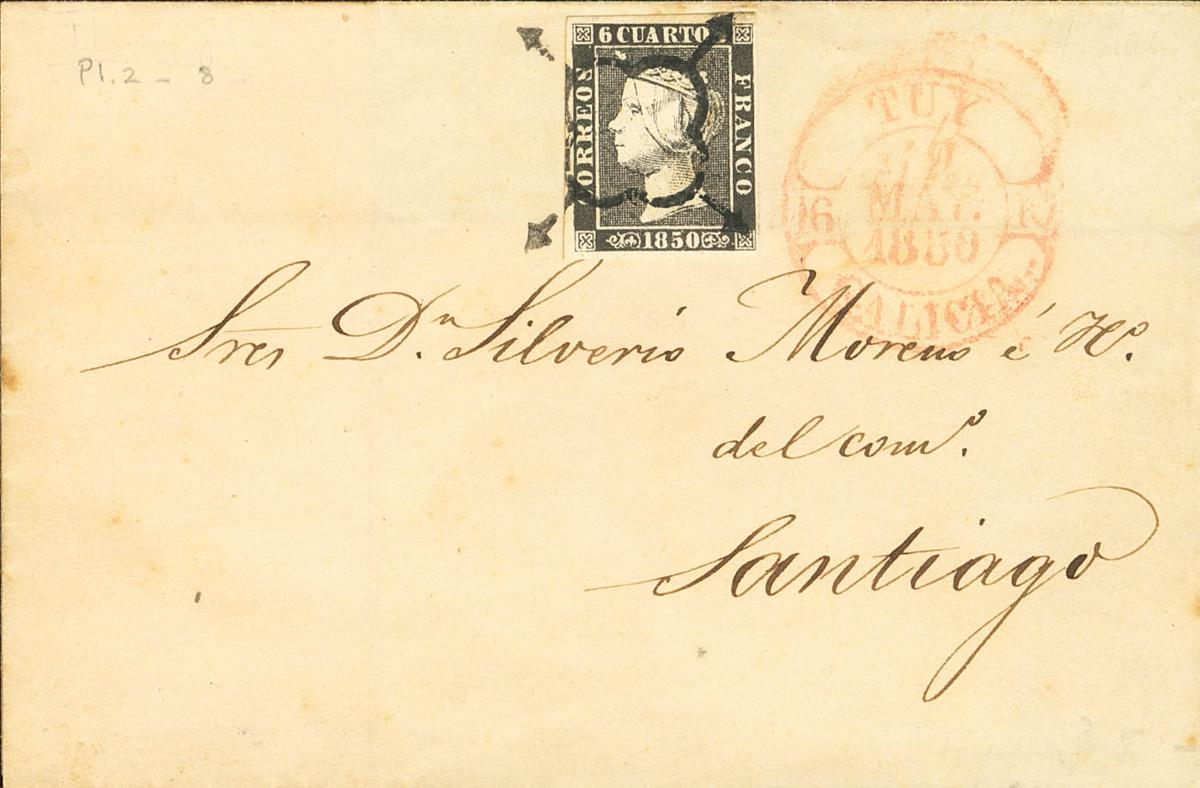 Pl. 2 - 8
6 CUARTOS
CORREOS
FRANCO
1850
TUY
MAY.
1850
16
GALICIA
Sres Dn. Silverio Moreno é Ho.
del como.
Santiago